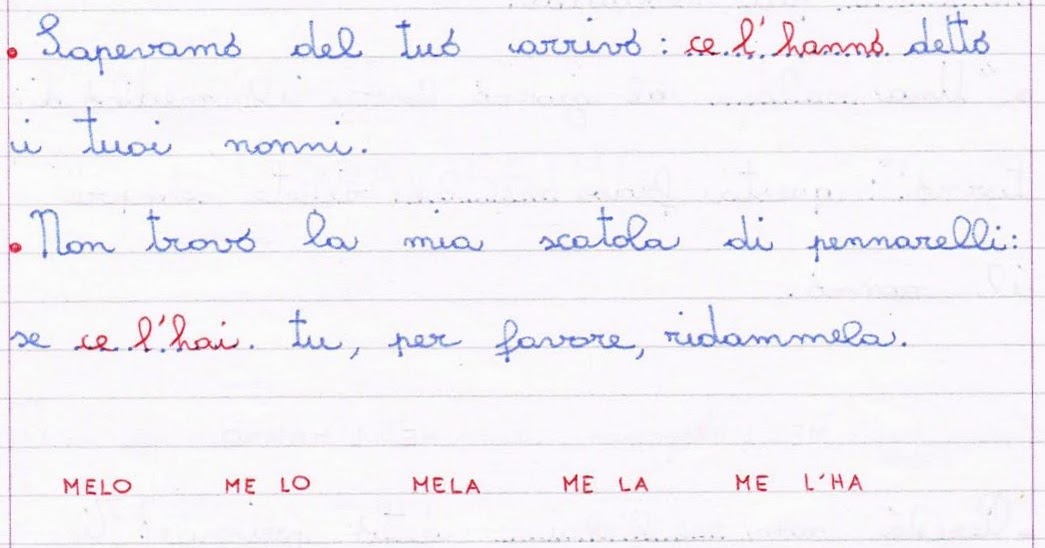 • Sapevamo del tuo arrivo: ce l'hanno detto
i tuoi nonni.
• Non trovo la mia scatola di pennarelli:
se ce l'hai tu, per favore, ridammela.
MELO ME LO MELA ME LA ME L'HA